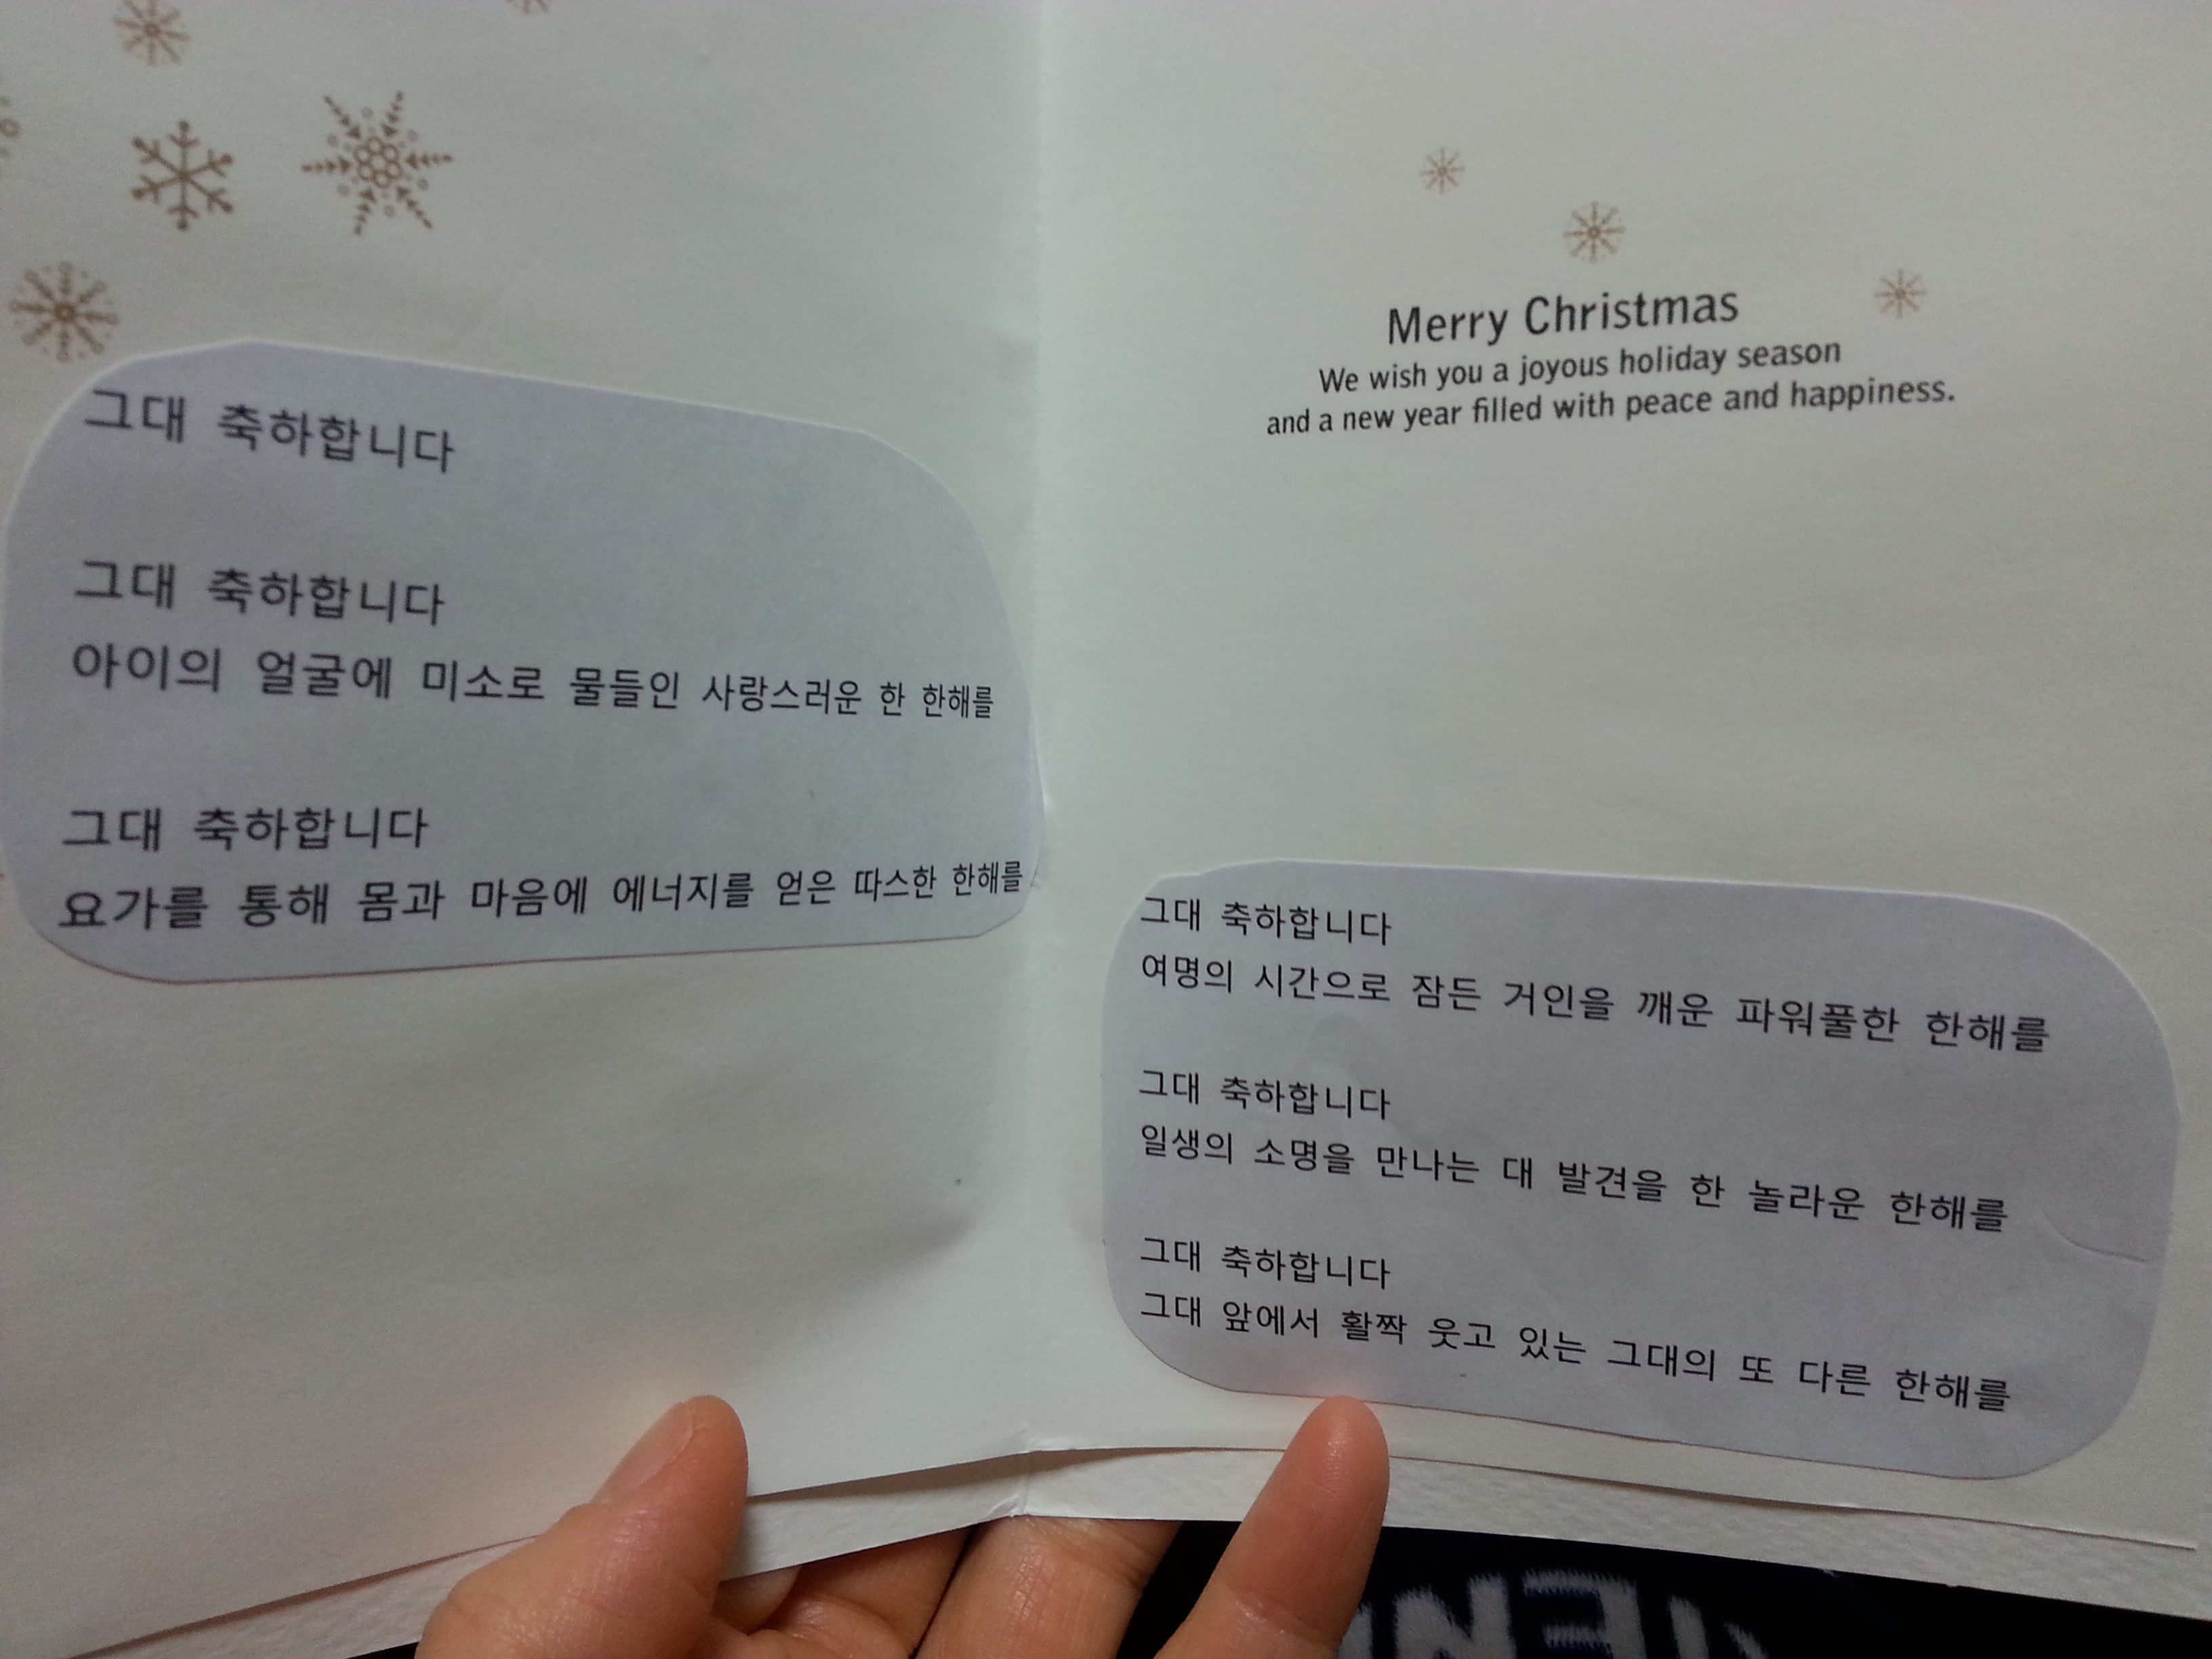 그대 축하합니다
그대 축하합니다
아이의 얼굴에 미소로 물들인 사랑스러운 한 한해를
그대 축하합니다
요가를 통해 몸과 마음에 에너지를 얻은 따스한 한해를
Merry Christmas
We wish you a joyous holiday season
and a new year filled with peace and happiness.
그대 축하합니다
여명의 시간으로 잠든 거인을 깨운 파워풀한 한해를
그대 축하합니다
일생의 소명을 만나는 대 발견을 한 놀라운 한해를
그대 축하합니다
그대 앞에서 활짝 웃고 있는 그대의 또 다른 한해를